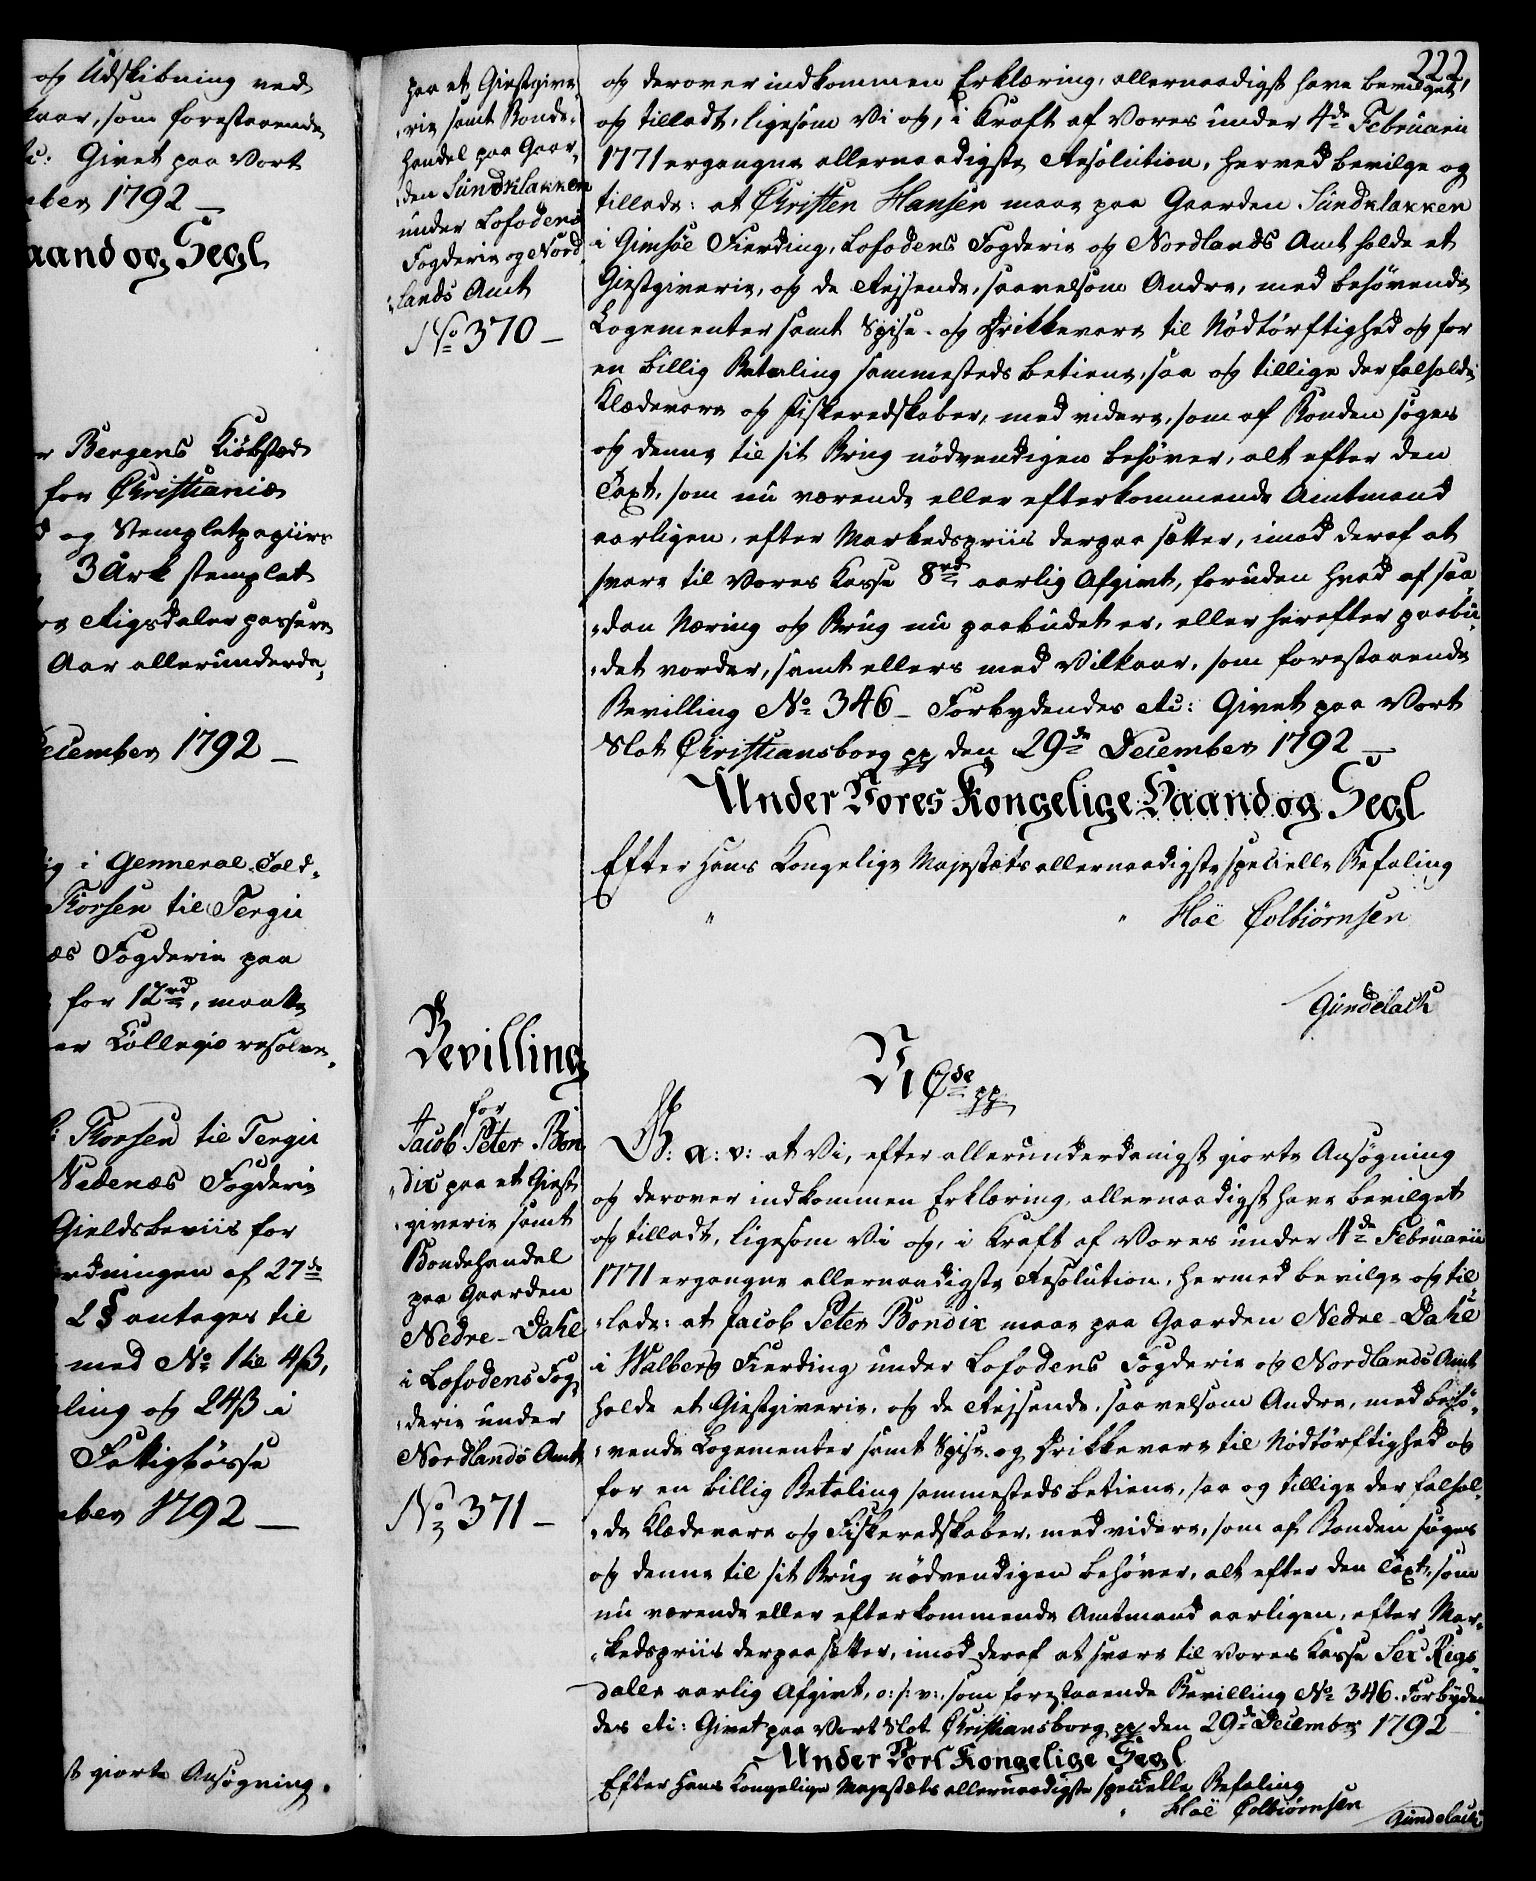 og Udskibning ved
kaar, som forestaaende
etc: Givet paa Vort
mber 1792 –
aand og Segl
Bergens Kiøbstæd
for Christianiæ
og Stemplet papiirs
3 Ark stemplet
Rigsdaler passere
Aar allerunderda,
December 1792 –
i Genneral Told,
Thorsen til Tergii
æs Fogderie paa
for 12rd, maatte
Collegio resolve,
Thorsen til Tergii
Nedenæs Fogderie
Gieldsbeviis for
ordningen af 27de
2 § antages til
med No 1 til 4ß,
ling og 24ß i
Fattigbøsse
mber 1792 –
giorte Ansøgning,
paa et Giestgive,
,rie samt Bonde,
handel paa Gaar,
,den Sundklakken
under Lofodens
Fogderie og Nord,
,lands Amt
No 370 –
Bevilling
for
Jacob Peter Bon,
,dix paa et Giest,
,giverie samt
Bondehandel
paa Gaarden
Nedre-Dahl
i Lofodens Fog,
,derie under
Nordlands Amt
No 371 –
222
og derover indkommen Erklæring, allernaadigst have bevilget,
og tilladt, ligesom Vi og, i Kraft af Vores under 4de Februarii
1771 ergangne allernaadigste Resolution, herved bevilge og
tillade: at Christen Hansen maae paa Gaarden Sundklakken
i Gimsøe Fierding, Lofodens Fogderie og Nordlands Amt holde et
Giestgiverie, og de Rejsende, saavelsom Andre, med behøvende
Logementer samt Spise- og Drikkevare til Nødtørftighed og for
en billig Betaling sammesteds betiene, saa og tillige der falholde
Klædevare og Fiskeredskaber, med videre, som af Bonden søges
og denne til sit Brug nødvendigen behøver, alt efter den
Taxt, som nu værende eller efterkommende Amtmand
aarligen, efter Markedspriis derpaa sætter, imod deraf at
svare til Vores Kasse 8rd aarlig Afgivt, foruden hvad af saa,
,dan Næring og Brug nu paabudet er, eller herefter paabu,
,det vorder, samt ellers med Vilkaar, som forestaaende
Bevilling No 346 – Forbydendes etc: Givet paa Vort
Slot Christiansborg pp den 29de December 1792 –
Under Vores Kongelige Haand og Segl
Efter Hans Kongelige Majestæts allernaadigste specielle Befaling
" " Hoë Colbiørnsen
Gundelach
N Cde pp
G: a: v: at Vi, efter allerunderdanigst giorte Ansøgning
og derover indkommen Erklæring, allernaadigst have bevilget
og tilladt, ligesom Vi og, i Kraft af Vores under 4de Februarii
1771 ergangne allernaadigste Resolution, hermed bevilge og til
,lade: at Jacob Peter Bondix maae paa Gaarden Nedre-Dahl
i Walberg Fierding under Lofodens Fogderie og Nordlands Amt
holde et Giestgiverie, og de Rejsende, saavelsom Andre, med behø,
,vende Logementer samt Spise- og Drikkevare til Nødtørftighed og
for en billig Betaling sammesteds betiene, saa og tillige der falhol,
,de Klædevare og Fiskeredskaber, med videre, som af Bonden søges
og denne til sit Brug nødvendigen behøver, alt efter den Taxt, som
nu værende eller efterkommende Amtmand aarligen, efter Mar,
,kedspriis derpaa sætter, imod deraf at svare til Vores Kasse Sex Rigs,
daler aarlig Afgivt, o: s: v:, som forestaaende Bevilling No 346. Forbyden,
des etc: Givet paa Vort Slot Christiansborg pp den 29de Decembr 1792
Under Vort Kongelige Segl
Efter Hans Kongelige Majestæts allernaadigste specielle Befaling
" Hoë Colbiørnsen
Gundelach